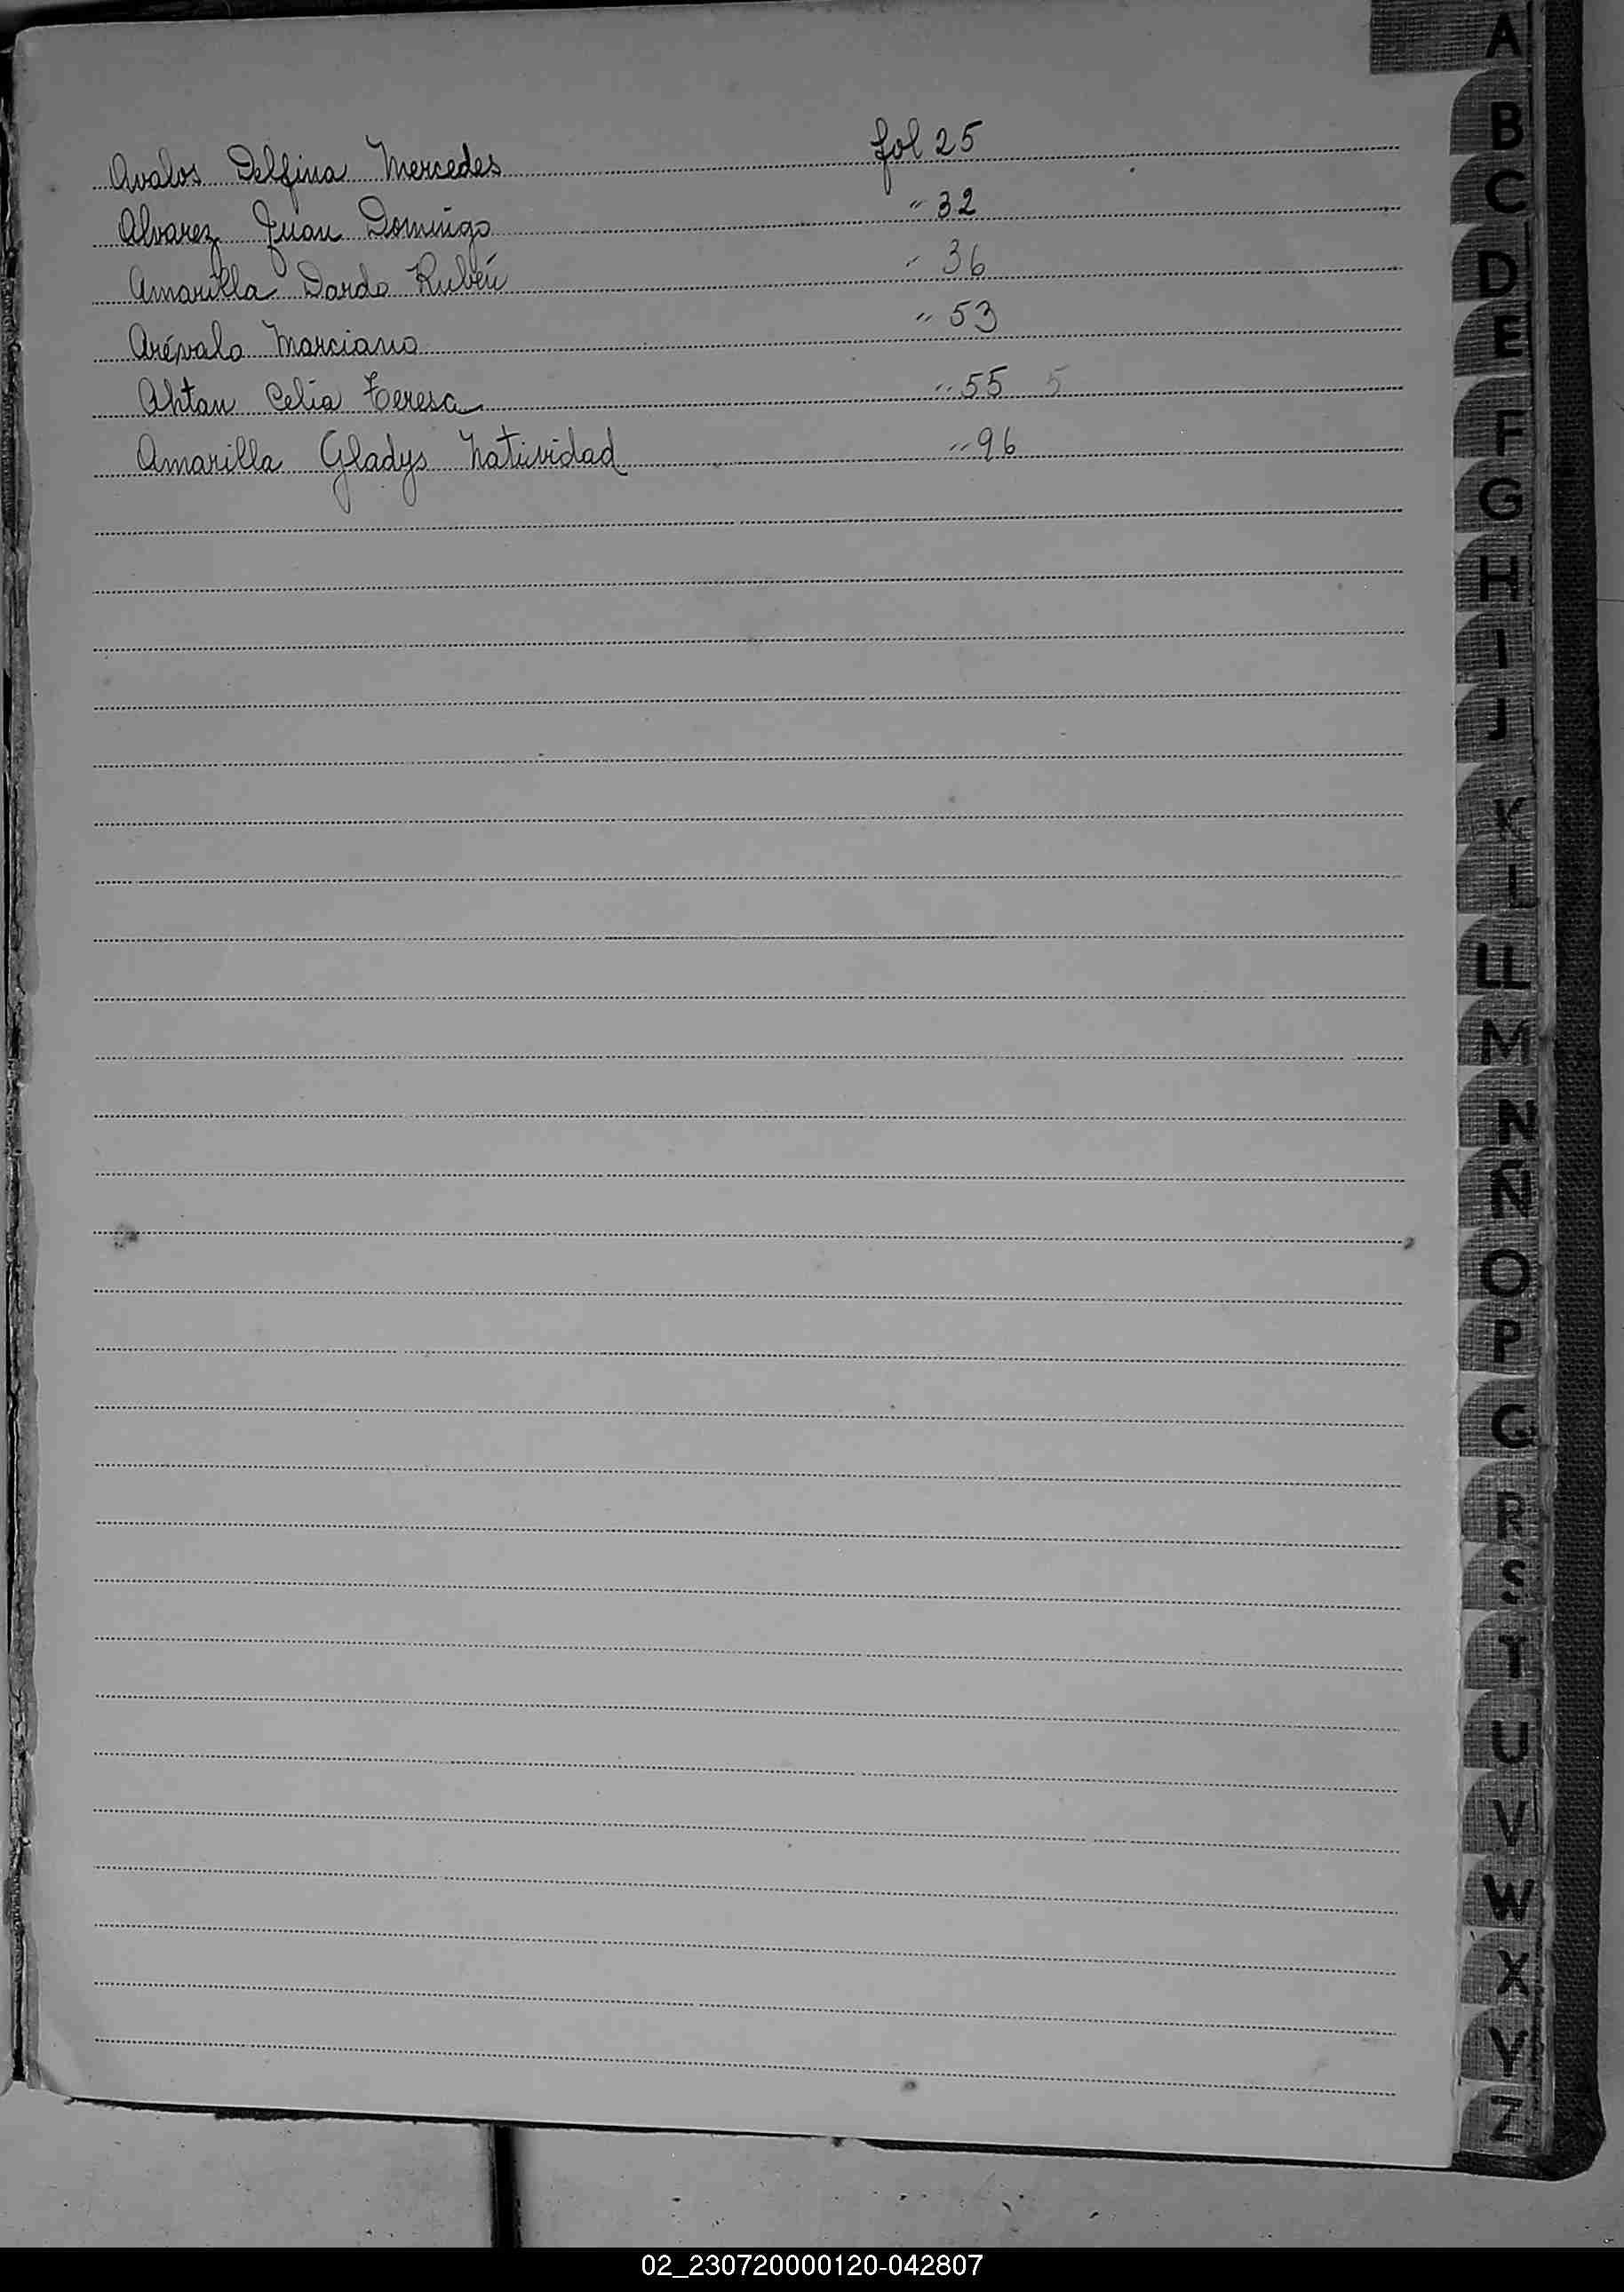 Avalos Delfina Mercedes fol 25
Alvarez Juan Domingo " 32
Amarilla Dardo Rubén " 36
Arévalo Marciano " 53
Ahtan Celia Teresa " 55 5
Amarilla Gladys Natividad " 96
A
B
C
D
E
F
G
H
I
J
K
L
LL
M
N
Ñ
O
P
Q
R
S
T
U
V
W
X
Y
Z
02_230720000120-042807